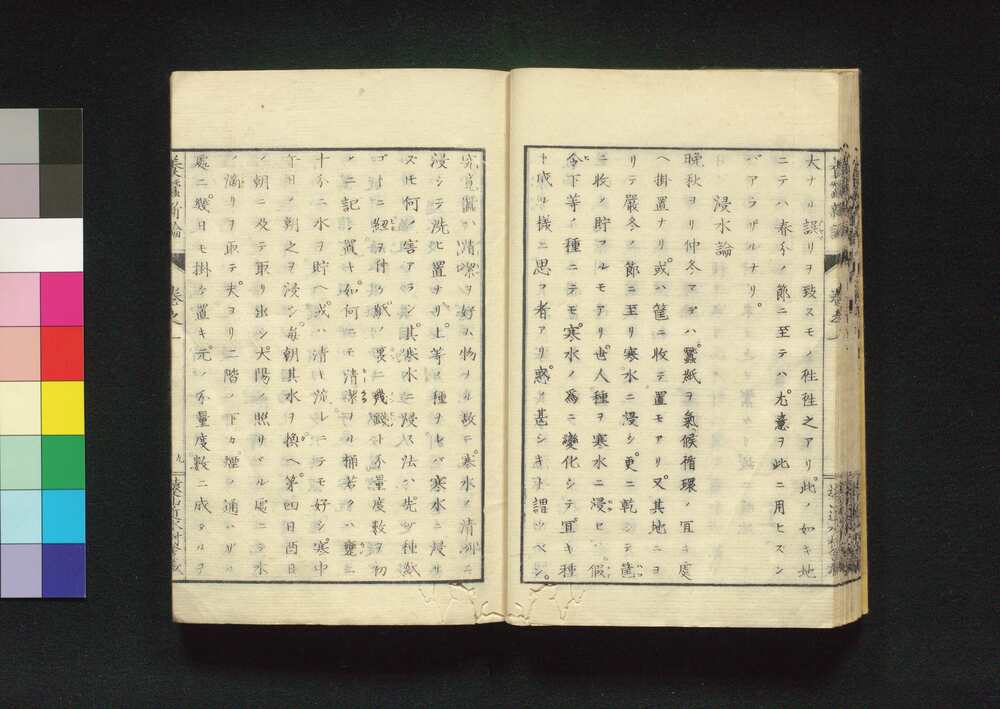 大ナル誤リヲ致スモノ徃徃之アリ此ノ如キ地
ニテハ春分ノ節ニ至テハ尤意ヲ此ニ用ヒスン
バアラザルナリ。
浸水論
晩秋ヨリ仲冬マデハ蠶紙ヲ氣候循環ノ宜キ處
ヘ掛置ナリ或ハ筐ニ收テ置モアリ又其地ニヨ
リテ嚴冬ノ節ニ至リ寒水ニ浸シ更ニ乾シテ筐
ニ收ノ貯フルモアリ世人種ヲ寒水ニ浸ヒバ假
令下等ノ種ニテモ寒水ノ爲ニ變化シテ宜キ種
ト成ル樣ニ思フ者アリ惑ノ甚シキト謂ツベシ。
ハ清潔ヲ好ム物ナル故ニ寒水ノ清冽ニ
浸シテ洗ヒ置ナリ上等ノ種ヲレバ寒水ニ浸サ
ズトモ何ノ害アラン其寒水ニ浸ス法ハ先ヅ種紙
ゴトニ紐ヲ付ケ紙ノ裏ニ幾戔ト不量度数ヲ初
メニ記シ置キ如何ニモ清潔ナル桶若クハ甕ニ
十分ニ水ヲ貯ヘ或ハ清キ流レニテモ好シ寒中
午日ノ朝之ヲ浸シ毎朝其水ヲ換ヘ第四日酉日
ノ朝ニ及テ取リ出シ大陽ノ照リ處ニテ水
ノ滴リヲ取テ夫ヨリ二階ノ下カ煙ノ通ハザル
處ニ幾日モ掛ケ置キ元ノ不量度數ニ成タルヲ
養蠶新論
卷之一
九